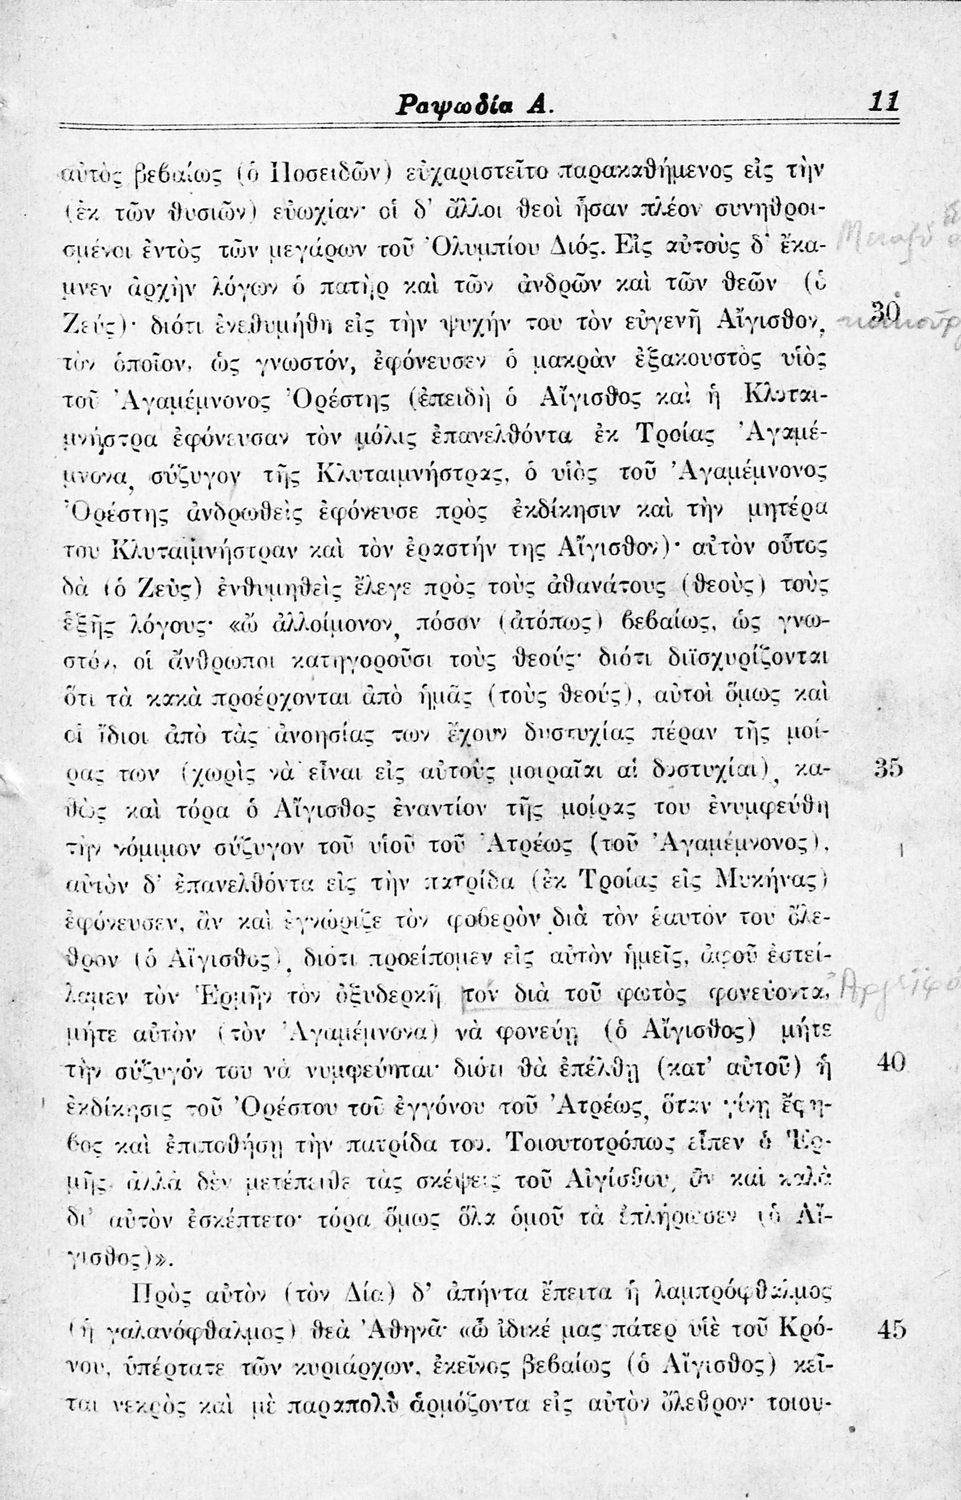 Ραψωδία Α. 11
αὐτὸς βεβαίως (ὁ Ποσειδῶν) εὐχαριστεῖτο παρακαθήμενος εἰς τὴν
(ἐκ τῶν θυσιῶν) εὐωχίαν· οἱ δ' ἄλλοι θεοὶ ἦσαν πλέον συνηθροι-
σμένοι ἐντὸς τῶν μεγάρων τοῦ Ὀλυμπίου Διός. Εἰς αὐτοὺς δ' ἔκα-
μνεν ἀρχὴν λόγων ὁ πατὴρ καὶ τῶν ἀνδρῶν καὶ τῶν θεῶν (ὁ
Ζεύς)· διότι ἐνεθυμήθη εἰς τὴν ψυχήν του τὸν εὐγενῆ Αἴγισθον, 30
τὸν ὁποῖον, ὡς γνωστόν, ἐφόνευσεν ὁ μακρὰν ἐξακουστὸς υἱὸς
τοῦ Ἀγαμέμνονος Ὀρέστης (ἐπειδὴ ὁ Αἴγισθος καὶ ἡ Κλυται-
μνήστρα ἐφόνευσαν τὸν μόλις ἐπανελθόντα ἐκ Τροίας Ἀγαμέ-
μνονα, σύζυγον τῆς Κλυταιμνήστρας, ὁ υἱὸς τοῦ Ἀγαμέμνονος
Ὀρέστης ἀνδρωθεὶς ἐφόνευσε πρὸς ἐκδίκησιν καὶ τὴν μητέρα
του Κλυταιμνήστραν καὶ τὸν ἐραστήν της Αἴγισθον)· αὐτὸν οὗτος
δὰ (ὁ Ζεὺς) ἐνθυμηθεὶς ἔλεγε πρὸς τοὺς ἀθανάτους (θεοὺς) τοὺς
ἑξῆς λόγους· «ὢ ἀλλοίμονον, πόσον (ἀτόπως) βεβαίως, ὡς γνω-
στόν, οἱ ἄνθρωποι κατηγοροῦσι τοὺς θεούς· διότι διϊσχυρίζονται
ὅτι τὰ κακὰ προέρχονται ἀπὸ ἡμᾶς (τοὺς θεούς), αὐτοὶ ὅμως καὶ
οἱ ἴδιοι ἀπὸ τὰς ἀνοησίας των ἔχουν δυστυχίας πέραν τῆς μοί-
ρας των (χωρὶς νὰ εἶναι εἰς αὐτοὺς μοιραῖαι αἱ δυστυχίαι), κα- 35
θὼς καὶ τόρα ὁ Αἴγισθος ἐναντίον τῆς μοίρας του ἐνυμφεύθη
τὴν νόμιμον σύζυγον τοῦ υἱοῦ τοῦ Ἀτρέως (τοῦ Ἀγαμέμνονος),
αὐτὸν δ' ἐπανελθόντα εἰς τὴν πατρίδα (ἐκ Τροίας εἰς Μυκήνας)
ἐφόνευσεν, ἂν καὶ ἐγνώριζε τὸν φοβερὸν διὰ τὸν ἑαυτόν του ὄλε-
θρον (ὁ Αἴγισθος), διότι προείπομεν εἰς αὐτὸν ἡμεῖς, ἀφοῦ ἐστεί-
λαμεν τὸν Ἑρμῆν τὸν ὀξυδερκῆ τὸν διὰ τοῦ φωτὸς φονεύοντα,
μήτε αὐτὸν (τὸν Ἀγαμέμνονα) νὰ φονεύῃ (ὁ Αἴγισθος) μήτε
τὴν σύζυγόν του νὰ νυμφεύηται· διότι θὰ ἐπέλθῃ (κατ' αὐτοῦ) ἡ 40
ἐκδίκησις τοῦ Ὀρέστου τοῦ ἐγγόνου τοῦ Ἀτρέως, ὅταν γίνῃ ἔφη-
βος καὶ ἐπιποθήσῃ τὴν πατρίδα του. Τοιουτοτρόπως εἶπεν ὁ Ἑρ-
μῆς· ἀλλὰ δὲν μετέπειθε τὰς σκέψεις τοῦ Αἰγίσθου, ἂν καὶ καλὰ
δι' αὐτὸν ἐσκέπτετο· τόρα ὅμως ὅλα ὁμοῦ τὰ ἐπλήρωσεν (ὁ Αἴ-
γισθος)».
Πρὸς αὐτὸν (τὸν Δία) δ' ἀπήντα ἔπειτα ἡ λαμπρόφθαλμος
(ἡ γαλανόφθαλμος) θεὰ Ἀθηνᾶ· «ὢ ἰδικέ μας πάτερ υἱὲ τοῦ Κρό- 45
νου, ὑπέρτατε τῶν κυριάρχων, ἐκεῖνος βεβαίως (ὁ Αἴγισθος) κεῖ-
ται νεκρὸς καὶ μὲ παραπολὺ ἁρμόζοντα εἰς αὐτὸν ὄλεθρον· τοιου-